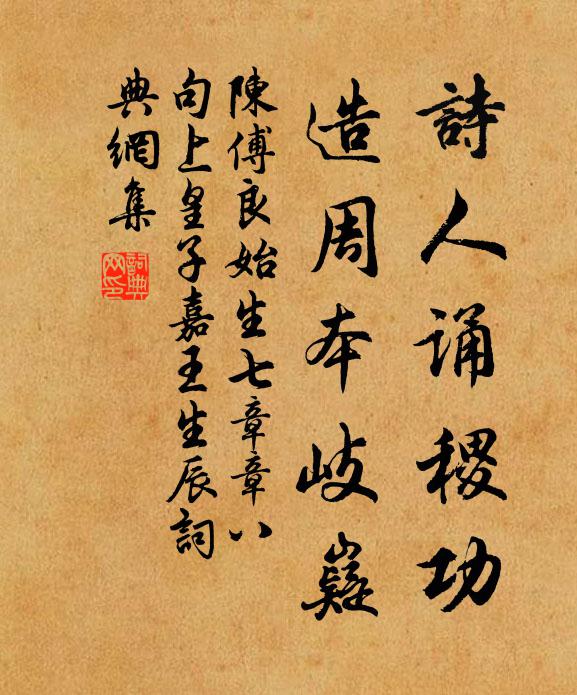 詩人誦稷功
造周本岐嶷
陳傅良始生七章章八
句上皇子嘉王生辰詞
典網集
詞典網印